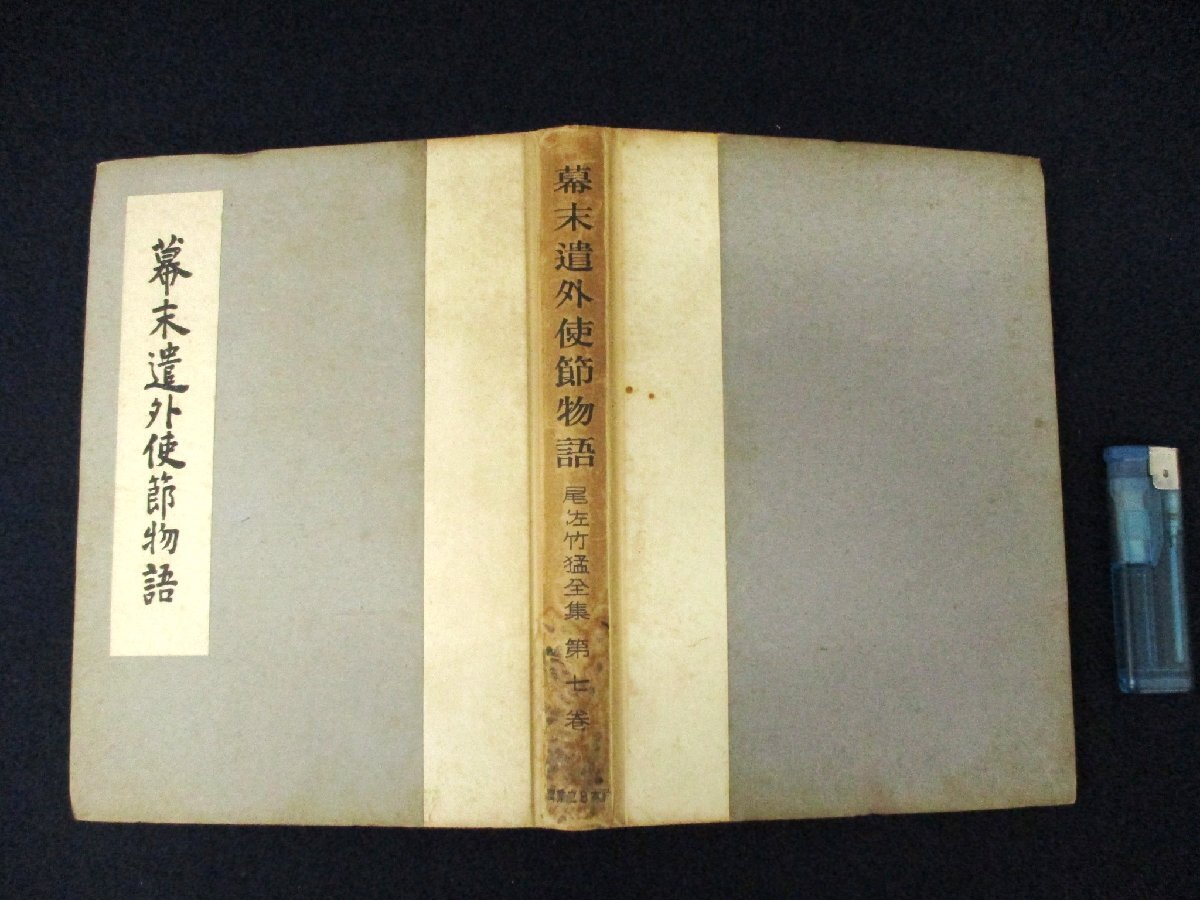 幕末遣外使節物語
幕末遣外使節物語
尾佐竹猛全集 第七卷